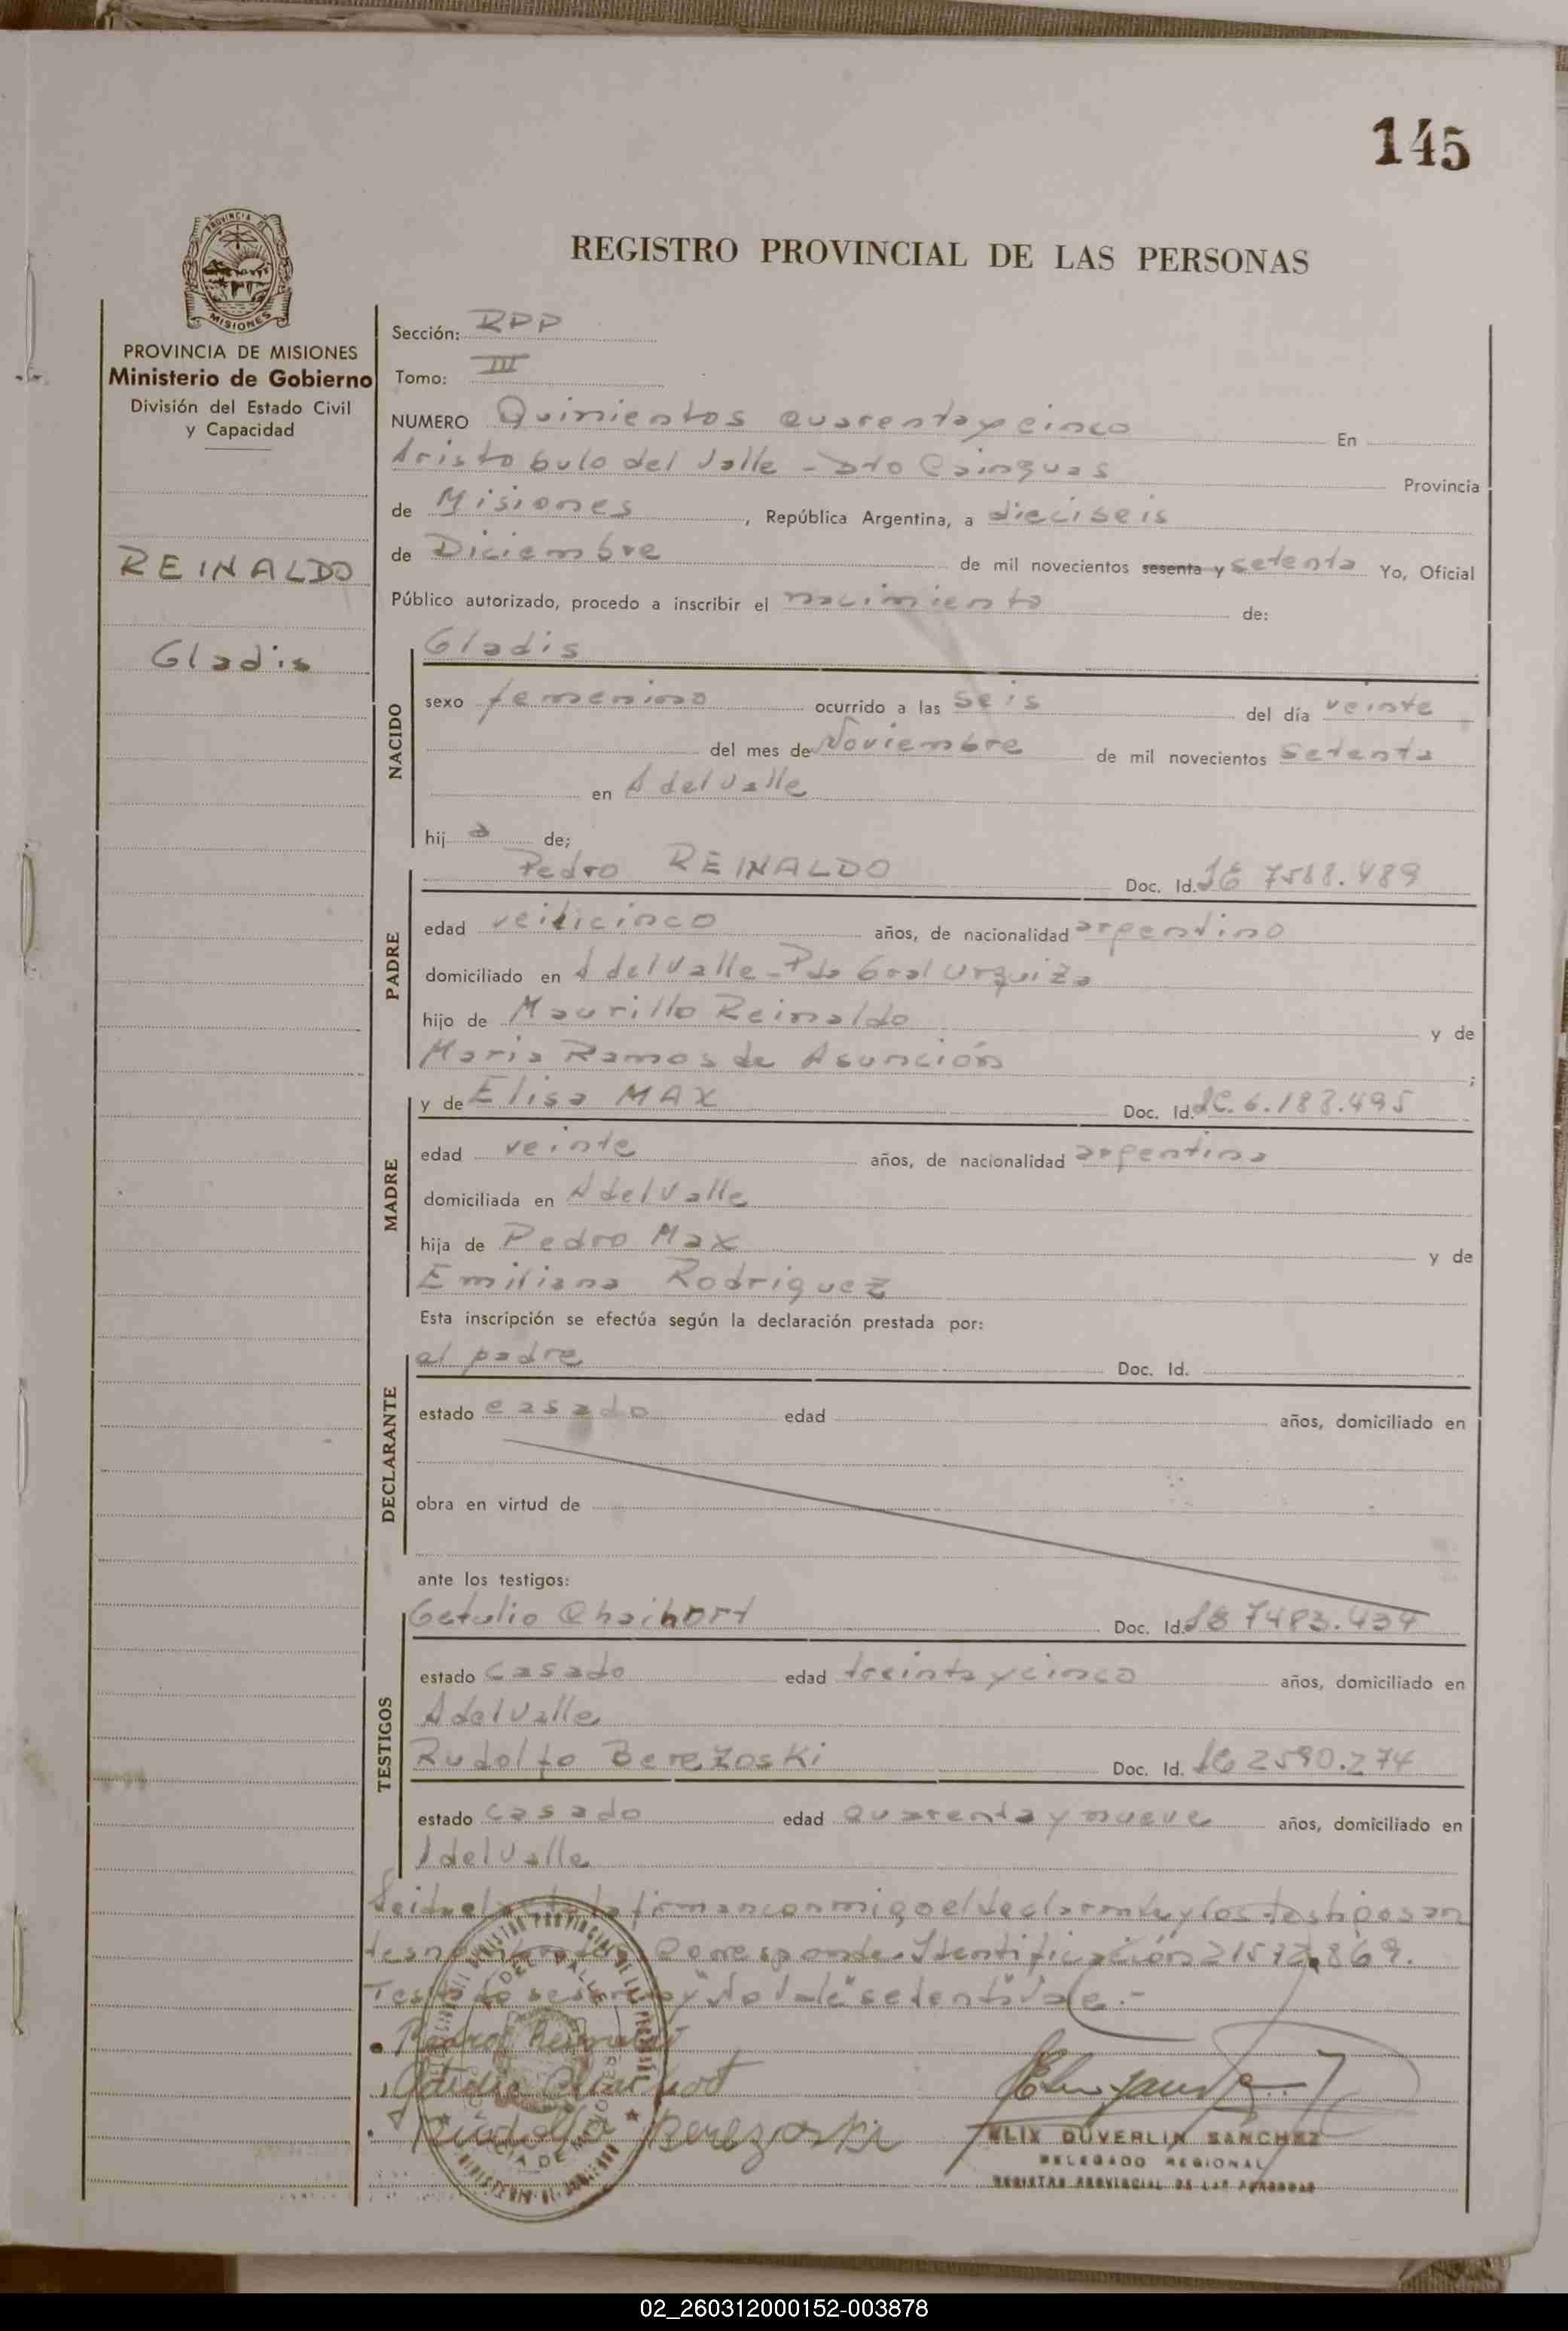 145
PROVINCIA DE
MISIONES
REGISTRO PROVINCIAL DE LAS PERSONAS
PROVINCIA DE MISIONES
Ministerio de Gobierno
División del Estado Civil
y Capacidad
REINALDO
Gladis
Sección: RPP
Tomo: III
NUMERO Quinientos cuarenta y cinco En
Aristobulo del Valle - Dto Cainguas Provincia
de Misiones, República Argentina, a dieciseis
de Diciembre de mil novecientos sesenta y setenta Yo, Oficial
Público autorizado, procedo a inscribir el nacimiento de:
NACIDO
Gladis
sexo femenino ocurrido a las seis del día veinte
del mes de Noviembre de mil novecientos setenta
en A del Valle
hij a de;
PADRE
Pedro REINALDO Doc. Id. 7588.489
edad veiticinco años, de nacionalidad argentino
domiciliado en A del Valle - Pdo Gral Urquiza
hijo de Maurillo Reinaldo y de
Maria Ramos de Asunción ;
MADRE
y de Elisa MAX Doc. Id. 6.188.495
edad veinte años, de nacionalidad argentina
domiciliada en A del Valle
hija de Pedro Max y de
Emiliana Rodriguez
Esta inscripción se efectúa según la declaración prestada por:
DECLARANTE
el padre Doc. Id.
estado casado edad años, domiciliado en
obra en virtud de
ante los testigos:
TESTIGOS
Getulio Doc. Id. 7483.434
estado casado edad treinta y cinco años, domiciliado en
A del Valle
Rudolfo Berezoski Doc. Id. 2590.274
estado casado edad cuarenta y nueve años, domiciliado en
A del Valle
Leida el acta la firman conmigo el declarante y los testigos an
tes nombrados. Corresponde Identificación 21572.869.
Testado sesenta y "No Vale" setenta Vale.-
Pedro Reinaldo
Getulio
Rudolfo Berezoski
FELIX DUVERLIN SANCHEZ
DELEGADO REGIONAL
REGISTRO PROVINCIAL DE LAS PERSONAS
02_260312000152-003878